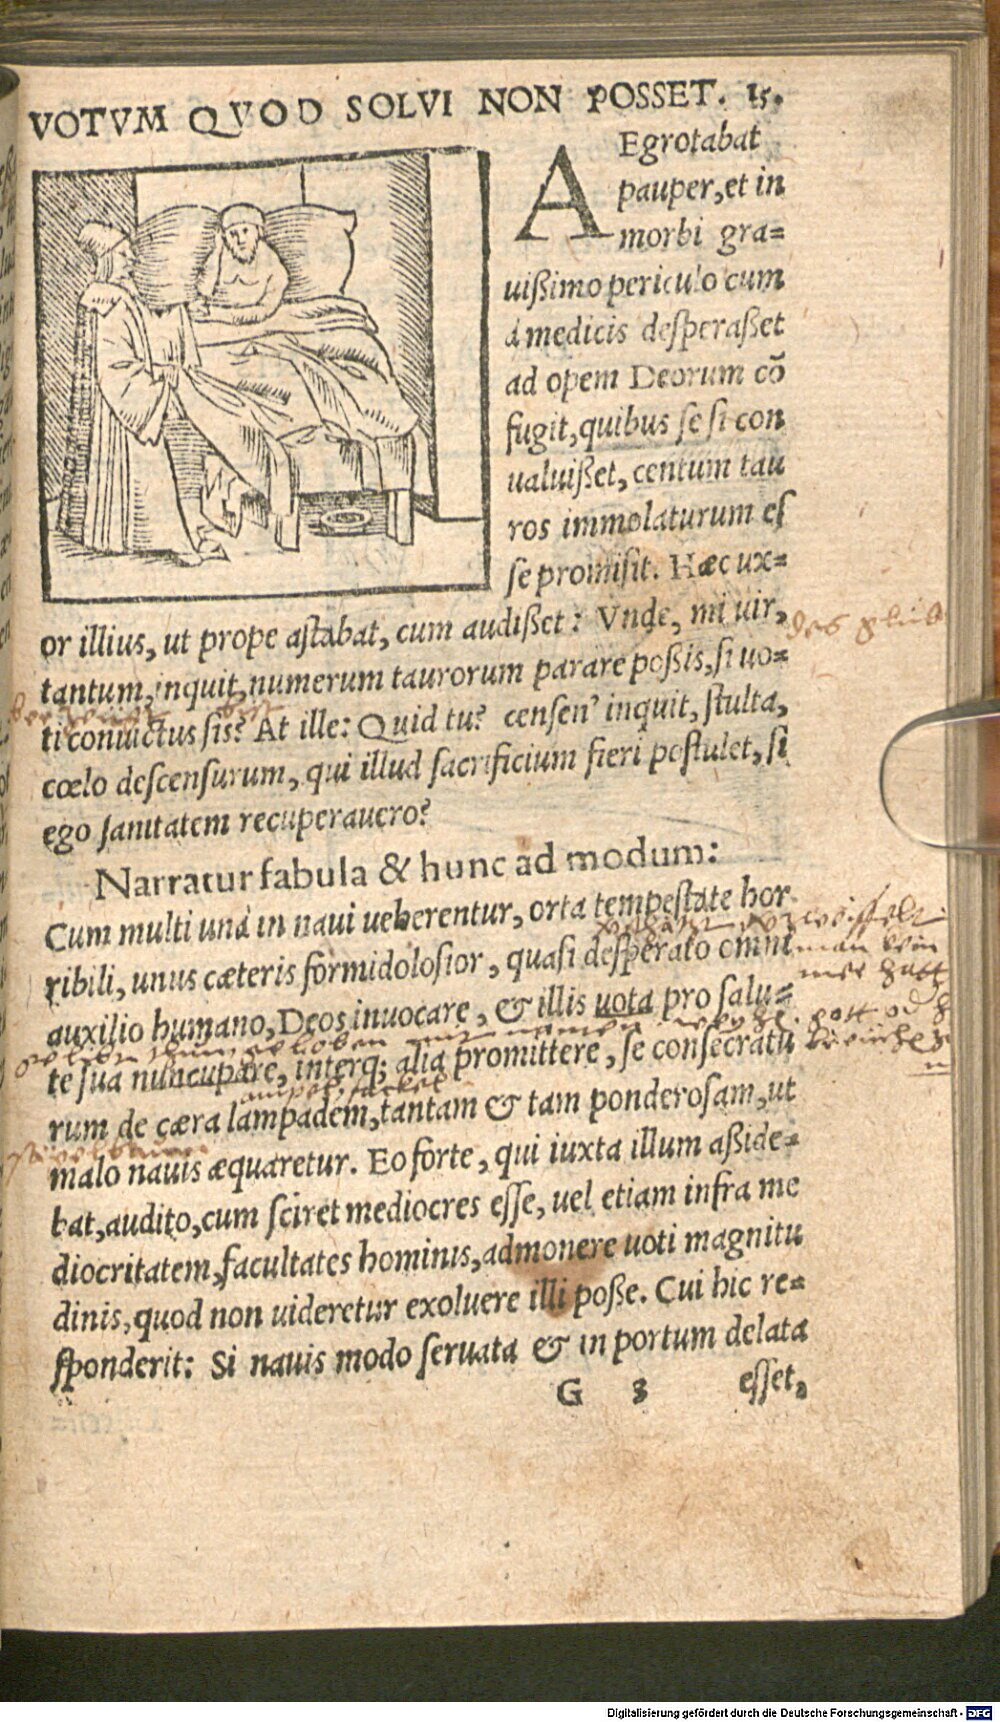 VOTVM QVOD SOLVI NON POSSET. 15.
AEgrotabat
pauper, et in
morbi gra=
uißimo periculo cum
à medicis desperaßet
ad opem Deorum cõ
fugit, quibus se si con
ualuißet, centum tau
ros immolaturum es
se promisit. Hæc ux=
or illius, ut prope astabat, cum audißet: Vnde, mi uir,
tantum, inquit, numerum taurorum parare poßis, si uo=
ti conuictus sis? At ille: Quid tu? censen' inquit, stulta,
cœlo descensurum, qui illud sacrificium fieri postulet, si
ego sanitatem recuperauero?
Narratur fabula & hunc ad modum:
Cum multi unà in naui ueherentur, orta tempestate hor
ribili, unus cæteris formidolosior, quasi desperato omni
auxilio humano, Deos inuocare, & illis uota pro salu=
te sua nuncupare, interq; alia promittere, se consecratu
rum de cæra lampadem, tantam & tam ponderosam, ut
malo nauis æquaretur. Eo forte, qui iuxta illum aßide=
bat, audito, cum sciret mediocres esse, uel etiam infra me
diocritatem, facultates hominis, admonere uoti magnitu
dinis, quod non uideretur exoluere illi poße. Cui hic re=
sponderit: Si nauis modo seruata & in portum delata
G 3 esset,
Digitalisierung gefördert durch die Deutsche Forschungsgemeinschaft - DFG